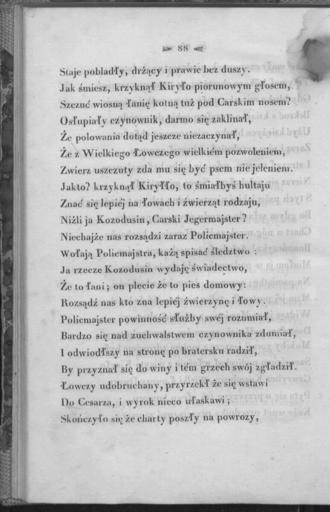 88
Staje pobladły, drżący i prawie bez duszy.
Jak śmiesz, krzyknął Kiryło piorunowym głosem,
Szczuć wiosną łanię kotną tuż pod Carskim nosem?
Osłupiały czynownik, darmo się zaklinał,
Że polowania dotąd jeszcze niezaczynał,
Że z Wielkiego Łowczego wielkiém pozwoleniem,
Zwierz uszczuty zda mu się być psem nie jeleniem.
Jakto? krzyknął Kiryłło, to śmiałbyś hultaju
Znać się lepiéj na łowach i źwierząt rodzaju,
Niźli ja Kozodusin, Carski Jegermajster?
Niechajże nas rozsądzi zaraz Policmajster.
Wołają Policmajstra, każą spisać śledztwo :
Ja rzecze Kozodusin wydaję świadectwo,
Że to łani; on plecie że to pies domowy:
Rozsądź nas kto zna lepiéj źwierzynę i łowy.
Policmajster powinność służby swéj rozumiał,
Bardzo się nad zuchwalstwem czynownika zdumiał,
I odwiodłszy na stronę po bratersku radził,
By przyznał się do winy i tém grzech swój zgładził.
Łowczy udobruchany, przyrzekł że się wstawi
Do Cesarza, i wyrok nieco ułaskawi;
Skończyło się że charty poszły na powrozy,